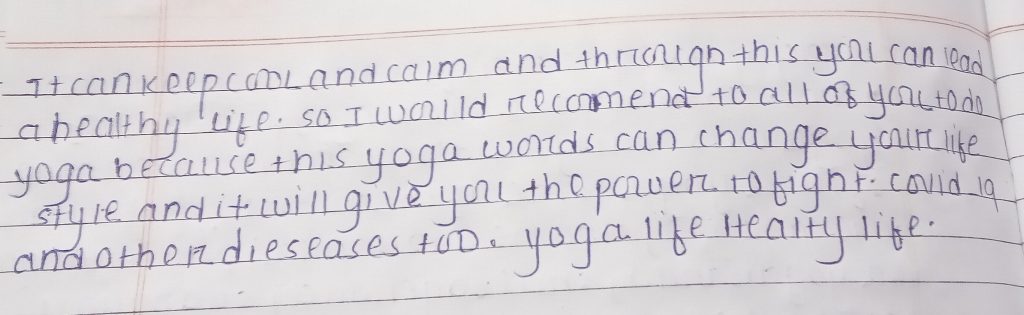 It can keep cool and calm and through this you can lead
a healthy life. so I would reccomend to all of you to do
yoga because this yoga words can change your life
style and it will give you the power to fight. covid 19
and other dieseases too. yoga life Healty life.